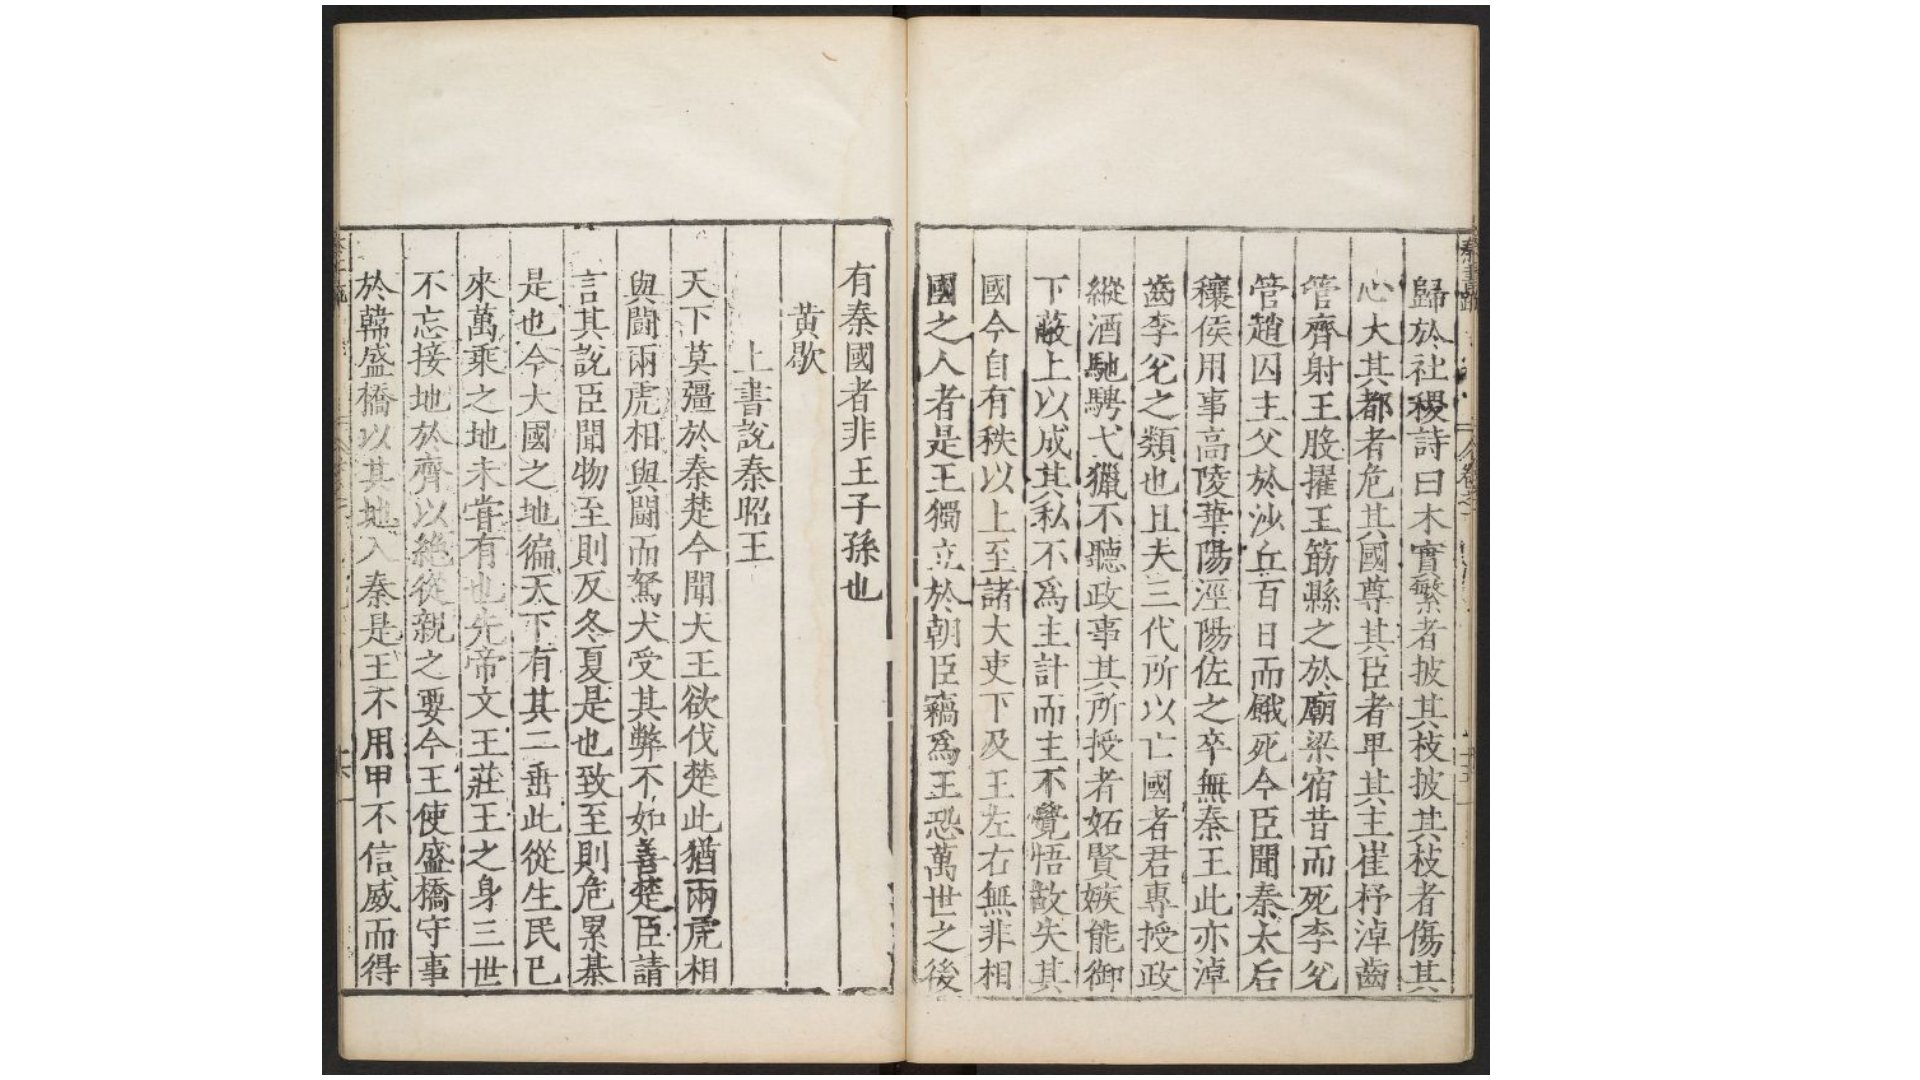 歸於社稷詩曰木實繁者披其枝披其枝者傷其
心大其都者危其國尊其臣者卑其主崔杼淖齒
管齊射王股擢王筋縣之於廟梁宿昔而死李兌
管趙囚主父於沙丘百日而餓死今臣聞秦太后
穰侯用事高陵華陽涇陽佐之卒無秦王此亦淖
齒李兌之類也且夫三代所以亡國者君專授政
縱酒馳騁弋獵不聽政事其所授者妬賢嫉能御
下蔽上以成其私不爲主計而主不覺悟故失其
國今自有秩以上至諸大吏下及王左右無非相
國之人者是王獨立於朝臣竊爲王恐萬世之後
有秦國者非王子孫也
黃歇
上書說秦昭王
天下莫彊於秦楚今聞大王欲伐楚此猶兩虎相
與鬬兩虎相與鬬而駑犬受其弊不如善楚臣請
言其說臣聞物至則反冬夏是也致至則危累棊
是也今大國之地徧天下有其二垂此從生民已
來萬乘之地未嘗有也先帝文王莊王之身三世
不忘接地於齊以絶從親之要今王使盛橋守事
於韓盛橋以其地入秦是王不用甲不信威而得